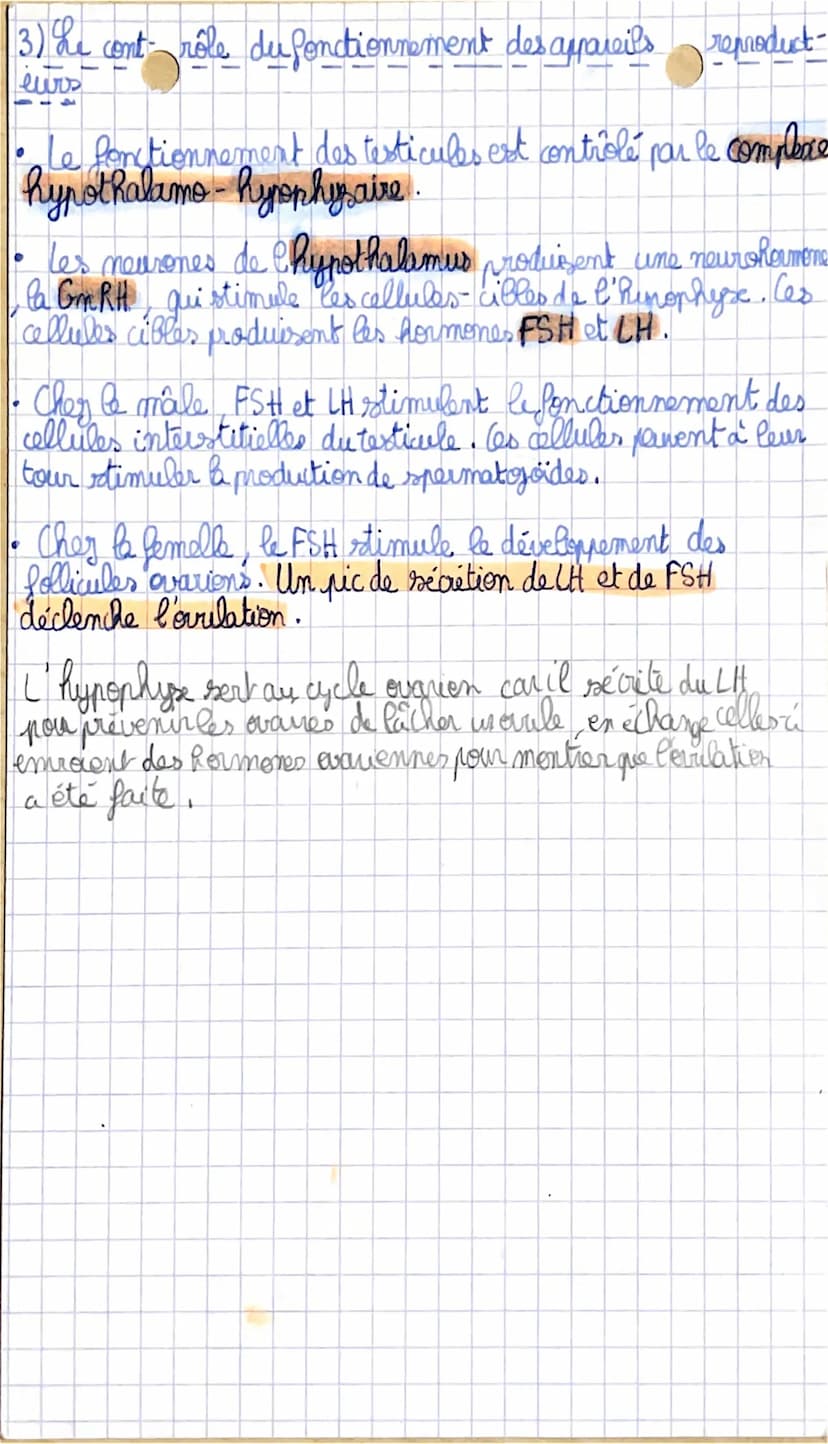 3) Le cont- rôle du fonctionnement des appareils reproduct-
eurs
• Le fonctionnement des testicules est contrôlé par le complexe
hypothalamo-hypophysaire.
• Les neurones de l'hypothalamus produisent une neurohormone
, la GnRH, qui stimule les cellules-cibles de l'hypophyse. Ces
cellules cibles produisent les hormones FSH et LH.
• Chez le mâle, FSH et LH stimulent le fonctionnement des
cellules interstitielles du testicule. Ces cellules peuvent à leur
tour stimuler la production de spermatozoïdes.
• Chez la femelle, le FSH stimule le développement des
follicules ovariens. Un pic de sécrétion de LH et de FSH
déclenche l'ovulation.
L'hypophyse sert au cycle ovarien car il sécrite du LH
pour prévenir les ovaires de lâcher un ovule, en échange celles-ci
envoient des hormones ovariennes pour montrer que l'ovulation
a été faite.